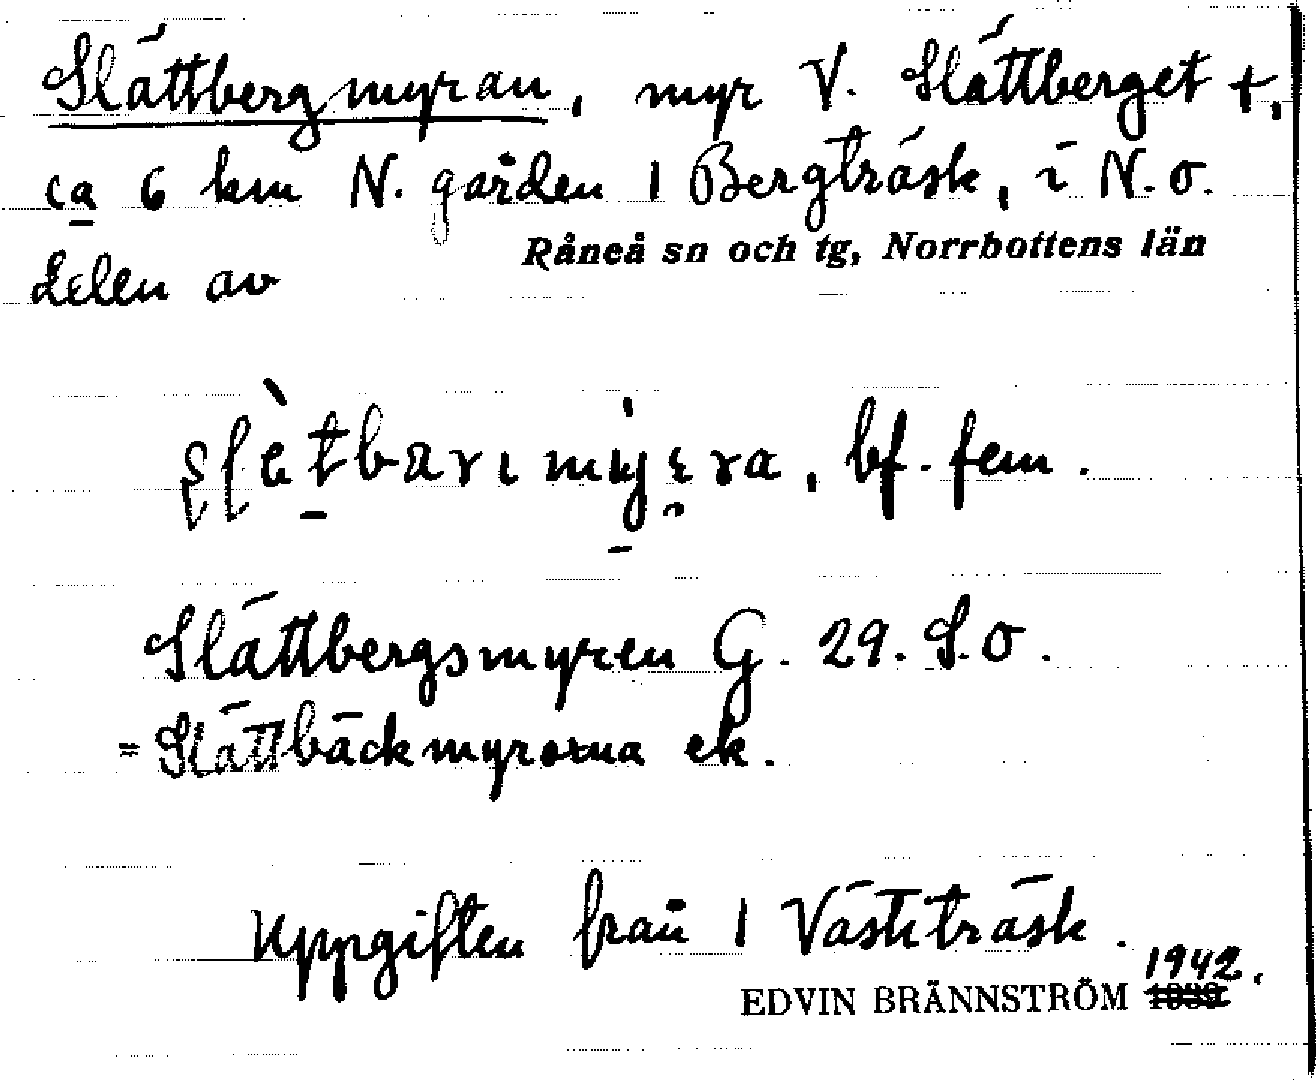 Slättbergmyran, myr V. Slättberget +,
ca 6 km N. gården 1 Bergträsk, i N.O.
delen av
Råneå sn och tg, Norrbottens län
bf. fem.
Slättbergsmyren G. 29. S.O.
= Slättbäckmyrorna ek.
Uppgiften från 1 Västiträsk.
1942.
EDVIN BRÄNNSTRÖM 1939